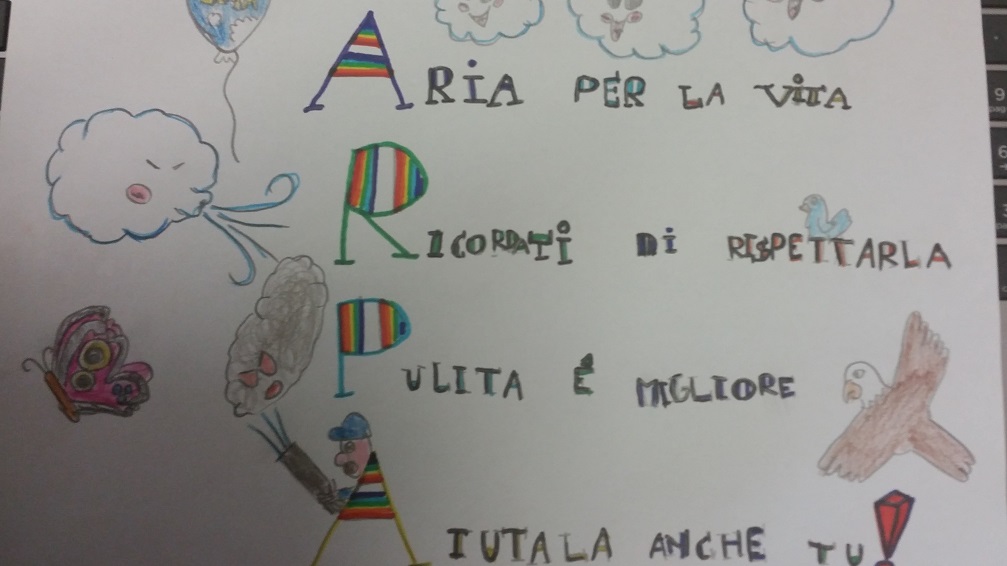 ARIA PER LA VITA
RICORDATI DI RISPETTARLA
PULITA É MIGLIORE
AIUTALA ANCHE TU!